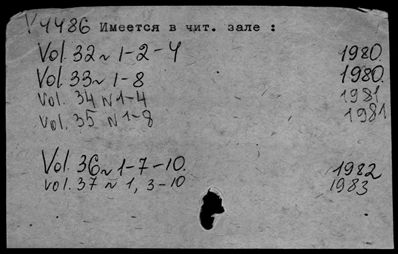 V4486 Имеется в чит. зале :
Vol. 32 N 1-2-4 1980.
Vol. 33 N 1-8 1980.
Vol. 34 N 1-4 1981
Vol. 35 N 1-8 1981
Vol. 36 N 1-7-10. 1982
vol. 37 N 1, 3-10 1983